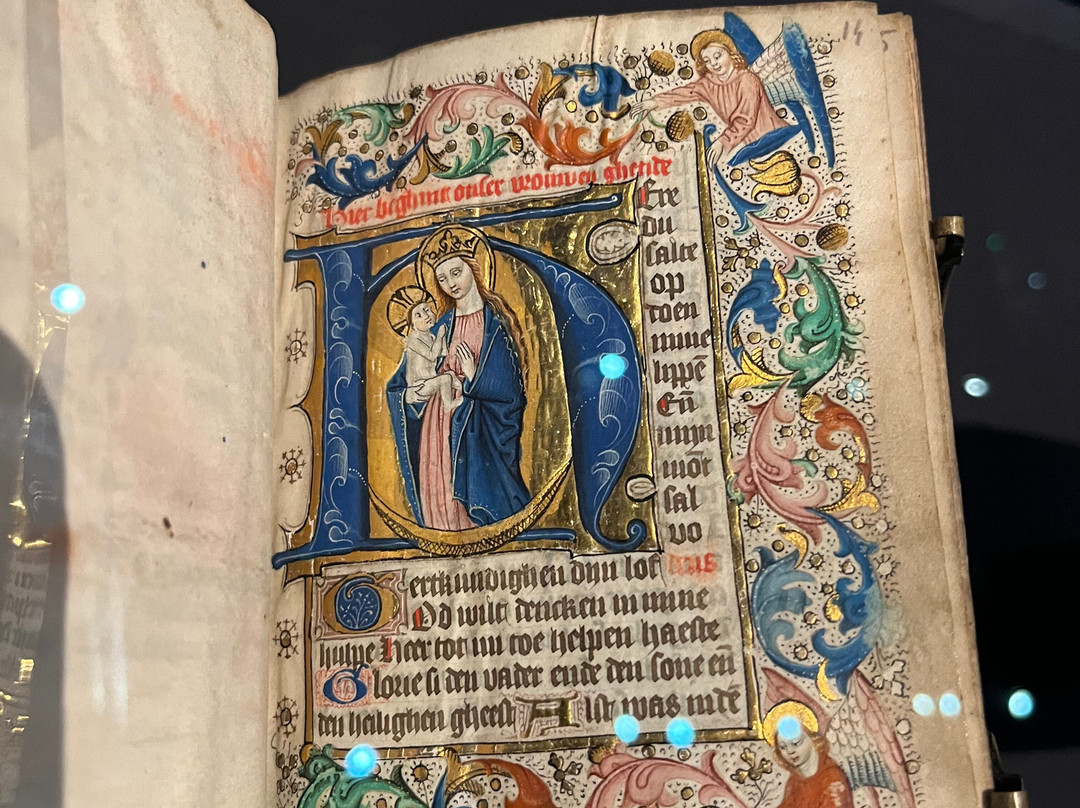 Hier beghint onser vrouwen ghetide
HEre
du
salte
op
doen
mine
lippē
Eñ
mijn
mōt
sal
vo
ertkundighen dijn lof
GOd wilt dencken in mine
hulpe Heer tot mi toe helpen haeste
Glorie si den vader ende den sone eñ
den heilighen gheest Alst was indē